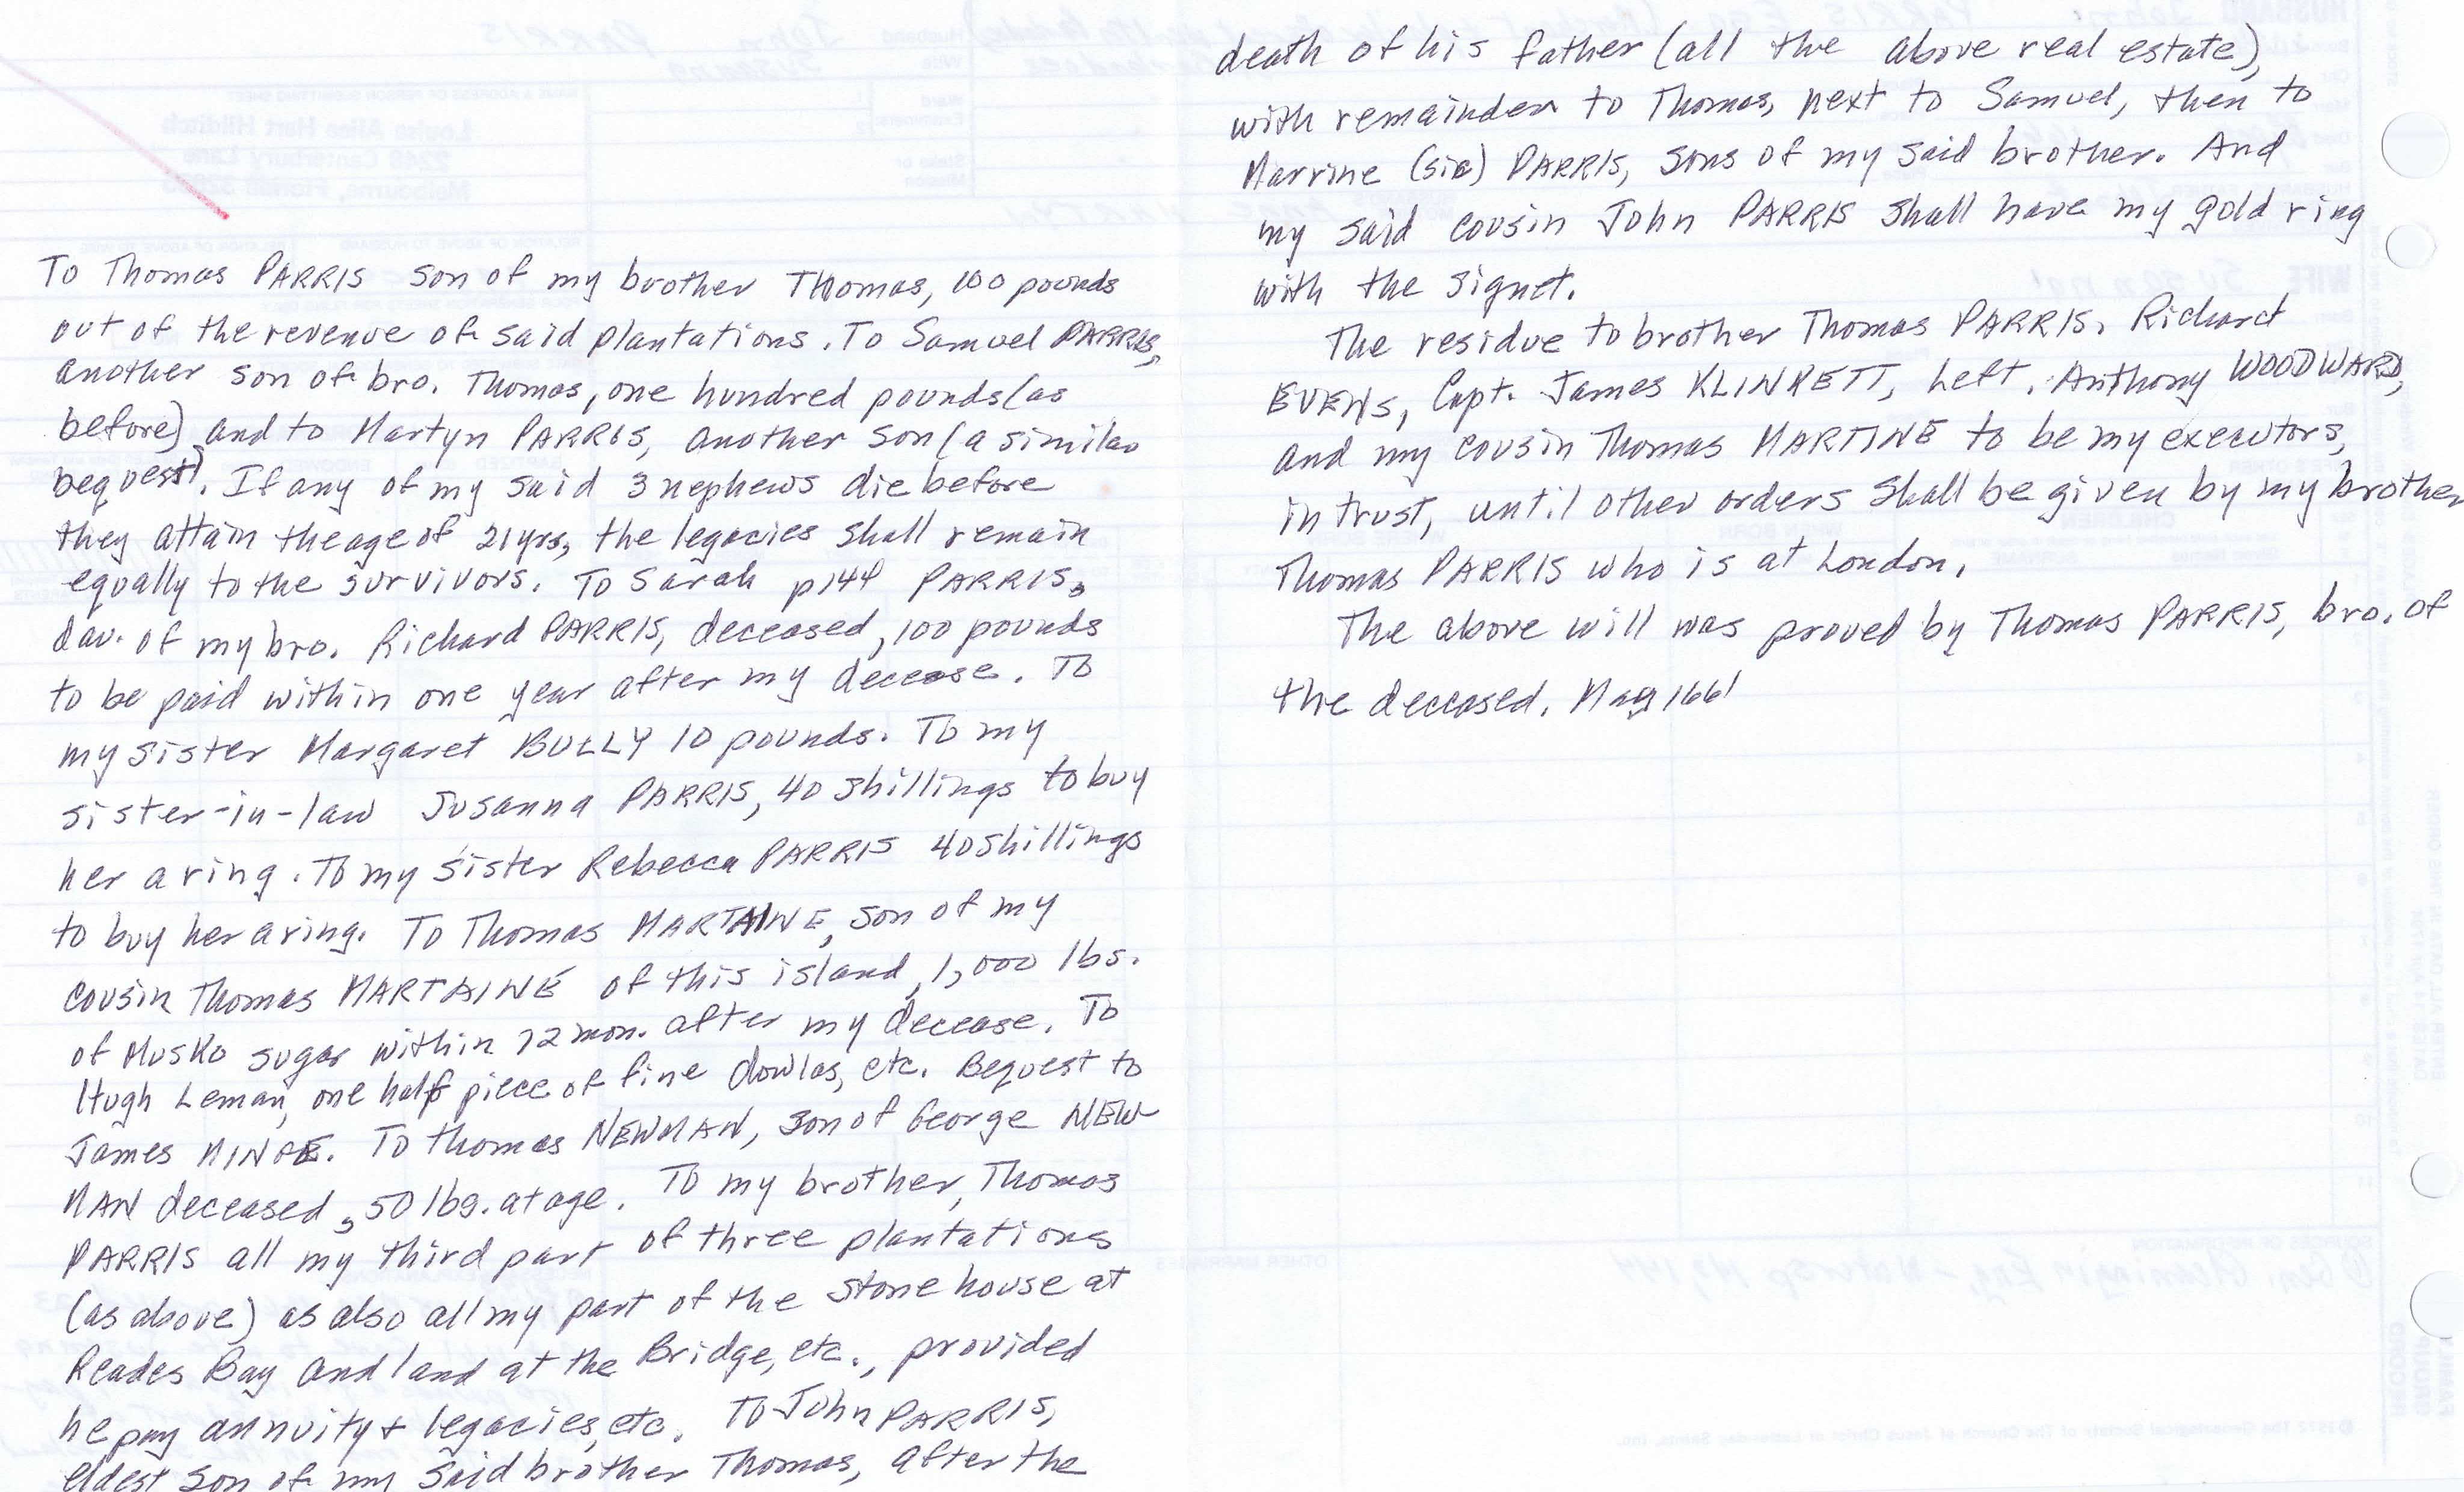 To Thomas PARRIS son of my brother Thomas, 100 pounds
out of the revenue of said plantations. To Samuel PARRIS,
another son of bro. Thomas, one hundred pounds (as
before) and to Martyn PARRIS, another son (a similar
bequest). If any of my said 3 nephews die before
they attain the age of 21 yrs, the legacies shall remain
equally to the survivors. To Sarah p144 PARRIS,
dau. of my bro. Richard PARRIS, deceased, 100 pounds
to be paid within one year after my decease. To
my sister Margaret BULLY 10 pounds. To my
sister-in-law Susanna PARRIS, 40 shillings to buy
her a ring. To my sister Rebecca PARRIS 40 shillings
to buy her a ring. To Thomas MARTAINE, son of my
cousin Thomas MARTAINE of this island, 1,000 lbs.
of Musko sugar within 12 mon. after my decease. To
Hugh Leman, one half piece of fine dowlas, etc. Bequest to
James To Thomas NEWMAN, son of George NEW-
MAN deceased, 50 lbs. at age. To my brother, Thomas
PARRIS all my third part of three plantations
(as above) as also all my part of the stone house at
Reades Bay and land at the Bridge, etc., provided
he pay annuity + legacies, etc. To John PARRIS,
eldest son of my said brother Thomas, after the
death of his father (all the above real estate),
with remainder to Thomas, next to Samuel, then to
Marrine (sic) PARRIS, sons of my said brother. And
my said cousin John PARRIS shall have my gold ring
with the signet.
The residue to brother Thomas PARRIS. Richard
EVENS, Capt. James KLINKETT, Left. Anthony WOODWARD,
and my cousin Thomas MARTINE to be my executors,
in trust, until other orders shall be given by my brother
Thomas PARRIS who is at London.
The above will was proved by Thomas PARRIS, bro. of
the deceased. May 1661